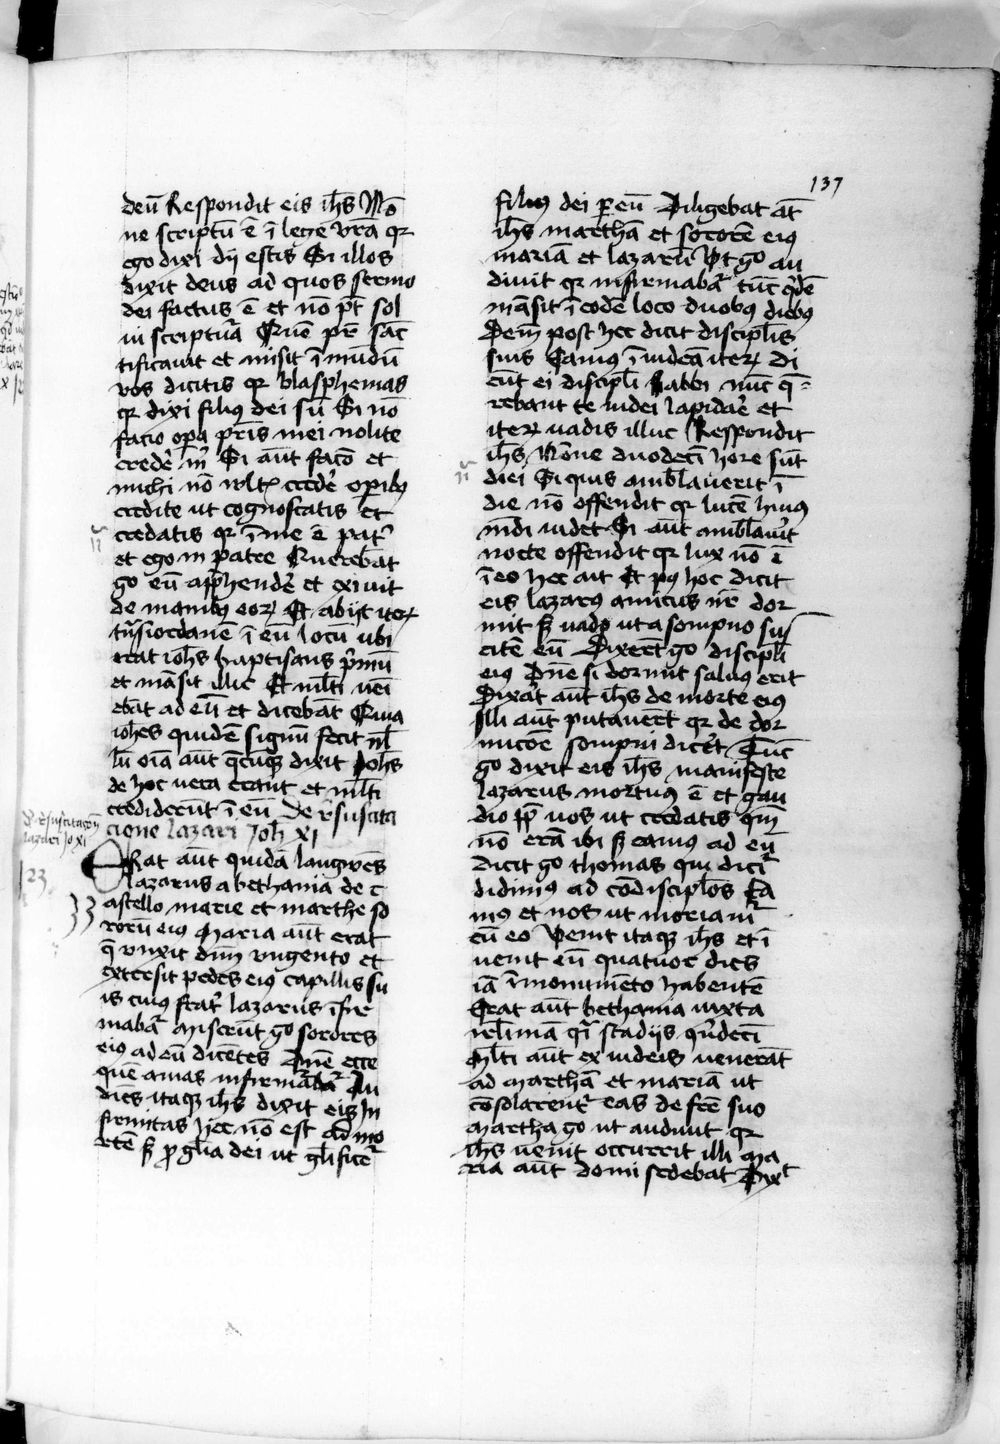 137
deū Respondit eis ih̄s Nō
ne scriptū ē ī lege vr̄a qr
ego dixi dij estis Si illos
dixit deus ad quos sermo
dei factus ē et nō pt̄ sol
ui scriptura Quē pr̄ sāc
tificauit et misit ī mūdū
vos dicitis qr blasphemas
qr dixi filiꝰ dei sū Si nō
facio opa pr̄is mei nolite
crede m̄ Si aūt facio et
michi nō wltꝭ crede opibꝰ
credite ut cognoscatis et
credatis qr ī me ē pat̄
et ego in patre Querebāt
go eū app̄hende et exiuit
de manibꝰ eoꝝ Et abijt iteꝝ
tn̄siordanē ī eū locū ubi
erat ioh̄s baptisans p̄mū
et māsit illic Et ml̄ti uēi
ebāt ad eū et dicebāt Quia
ioh̄es quidē signū fecit nl̄
lū oīa aūt q̄cūqꝫ dixit Joh̄s
de hoc uera erant et ml̄ti
crediderūt ī eū De r̄suscita
cione lazari Joh̄ xi
Erat aūt quidā langwēs
lazarus a bethania de c
astello marie et marthe so
rorū eiꝰ Maria aūt erat
q̄ vnxit dn̄m vngento et
extersit pedes eiꝰ capillis su
is cuiꝰ frat̄ lazarus īfir
mabat̄ Miserūt go sorores
eiꝰ ad eū dicētes Dn̄e ecce
quē amas infirmabat̄ Au
diēs itaqꝫ ih̄s dixit eis In
firmitas hec nō est ad mo
rtē sꝫ ꝓ gl̄ia dei ut gl̄ificet̄
filiꝰ dei per eū Diligebat āt
ih̄s marthā et sororē eiꝰ
mariā et lazarū Vt go au
diuit qr infirmabat̄ tūc q̄dē
māsit ī eodē loco duobꝰ diebꝰ
Deīn post hec dicit discipl̄is
suis Eamꝰ ī iudeā iteꝝ Di
cūt ei discipl̄i Rabbi nūc q̄
rebant te iudei lapidare et
iteꝝ uadis illuc Respondit
ih̄s Nōne duodecī hore sūt
diei Si quis ambl̄auerit ī
die nō offendit qr lucē huiꝰ
mūdi uidet Si aūt ambl̄au̓it
nocte offendit qr lux nō ē
ī eo hec ait Et pꝰ hoc dicit
eis lazarꝰ amicus nr̄ dor
mit sꝫ uado ut a sompno sus
citē eū Dixer̄t go discipl̄i
eiꝰ Dn̄e si dormit saluꝰ erit
Dixat̄ aūt ih̄s de morte eiꝰ
Illi aūt putauer̄t qr de dor
micōe sompni dicer̄t Tūc
go dixit eis ih̄s manifeste
lazarus mortuꝰ ē et gau
deo pp̄ uos ut credatis qm̄
nō erā ibi sꝫ eamꝰ ad eū
Dicit go thomas qui dicit̄
didimꝰ ad cōdiscipl̄os Ea
mꝰ et nos ut moriamr̄
cū eo Venit itaqꝫ ih̄s et ī
uenit eū quatuor dies
iā ī monumēto habentē
Erat aūt bethania iuxta
irl̄imā q̄i stadijs q̄ndecī
Ml̄ti aūt ex iudeis uenerāt
ad marthā et mariā ut
cōsolarent̄ eas de fr̄e suo
Martha go ut audiuit qr
ih̄s uenit occurrit illi Ma
ria aūt domi sedebat Dixᵗ
lazari Jo xi
123